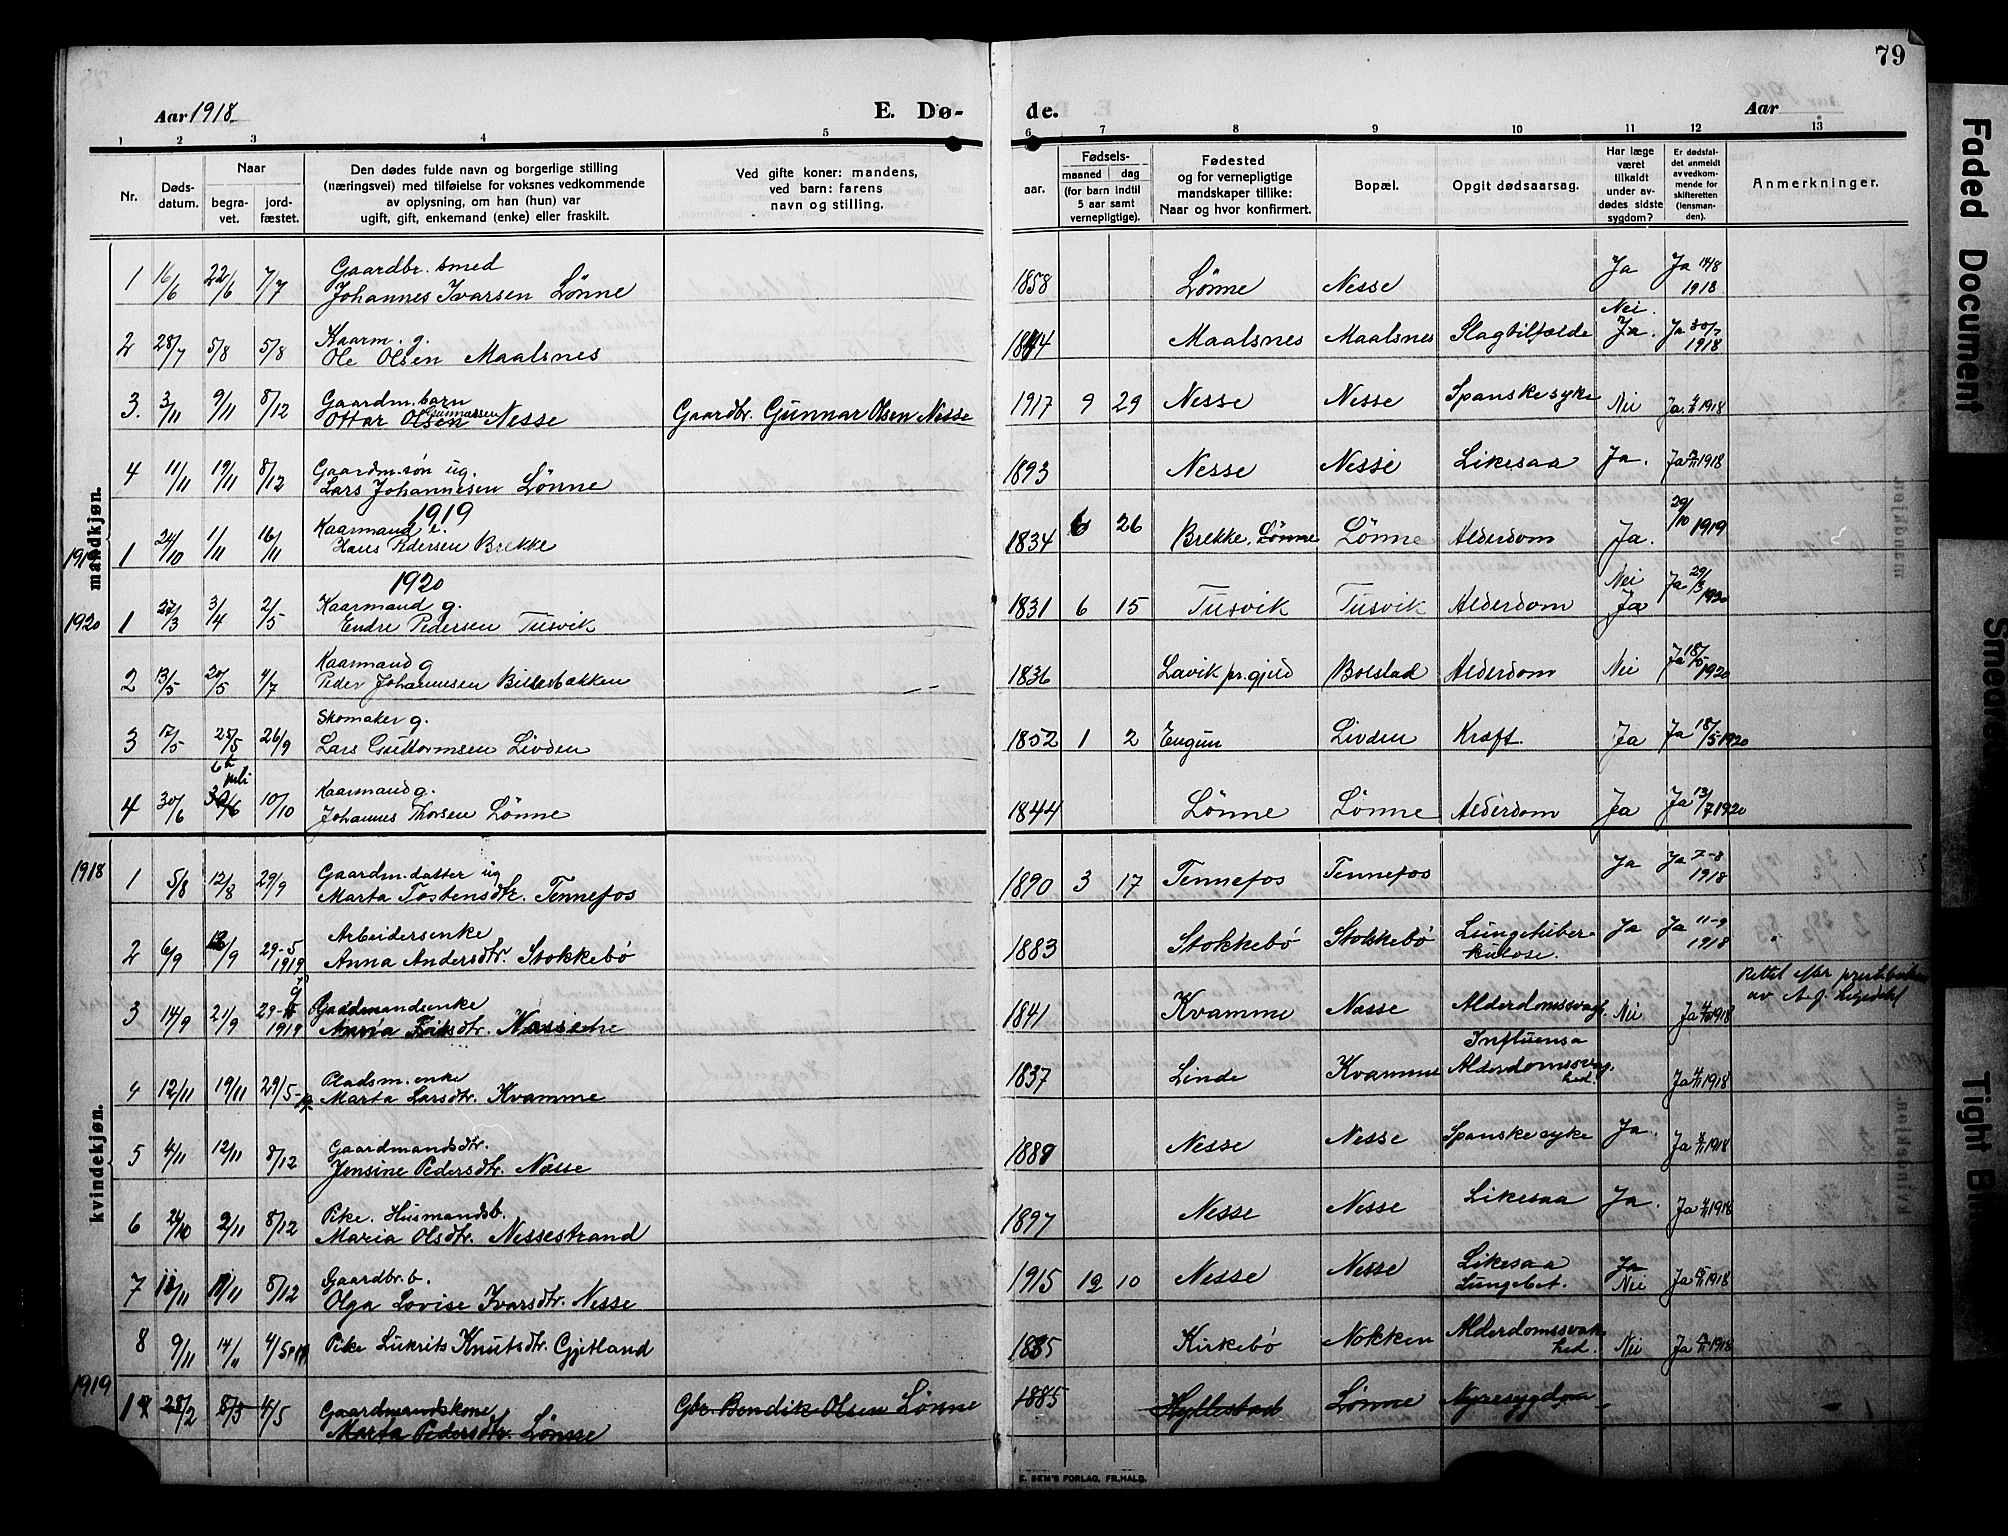 79
Aar 1918
E. Dø-
de.
Aar
1 2 3 4 5 6 7 8 9 10 11 12 13
Nr.
Døds-
datum.
Naar
begra-
vet.
jord-
fæstet.
Den dødes fulde navn og borgerlige stilling
(næringsvei) med tilføielse for voksnes vedkommende
av oplysning, om han (hun) var
ugift, gift, enkemand (enke) eller fraskilt.
Ved gifte koner: mandens,
ved barn: farens
navn og stilling.
aar.
Fødsels-
maaned dag
(for barn indtil
5 aar samt
vernepligtige).
Fødested
og for vernepligtige
mandskaper tillike:
Naar og hvor konfirmert.
Bopæl.
Opgit dødsaarsag.
Har læge
været
tilkaldt
under av-
dødes sidste
sygdom?
Er dødsfal-
det anmeldt
av vedkom-
mende for
skifteretten
(lensman-
den).
Anmerkninger.
mandkjøn.
Gaardbr. smed
1 16/6 22/6 7/7 Johannes Ivarsen Lønne 1858 Lønne Nesse Ja Ja 14/8 1918
Kaarm. g. Nei.
2 28/7 5/8 5/8 Ole Olsen Maalsnes 1844 Maalsnes Maalsnes Slagtilfælde Ja. Ja 30/7 1918
Gaardm. barn
Gunnarsen
3. 3/11 9/11 8/12 Ottar Olsen Nesse Gaardbr. Gunnar Olsen Nesse 1917 9 29 Nesse Nesse Spanskesyke Nei Ja. 1918
Gaardm. søn ug.
4 11/11 19/11 8/12 Lars Johannesen Lønne 1893 Nesse Nesse Likesaa Ja. Ja 1918
1919
Kaarmand e.
1919 1 24/10 1/11 16/11 Hans Pedersen Brekke 1834 6 26 Brekke, Lønne Lønne Alderdom Ja. 29/10 1919
1920
Kaarmand g. Nei
1920 1 27/3 3/4 2/5 Endre Pedersen Tusvik 1831 6 15 Tusvik Tusvik Alderdom Ja Ja 29/3 1920
Kaarmand g
2 13/5 20/5 4/7 Peder Johannesen 1836 Lavik pr.gjeld Bolstad Alderdom Nei Ja 18/5 1920
Skomaker g.
3 17/5 25/5 26/9 Lars Guttormsen Livden 1852 1 2 Engun Livden Kræft. Ja Ja 18/5 1920
6te juli
Kaarmand g.
4 30/6 30/6 10/10 Johannes Thorsen Lønne 1844 Lønne Lønne Alderdom Ja Ja 13/7 1920
kvindekjøn.
1918
Gaardm. datter ug
1 5/8 12/8 29/9 Marta Tostensdtr. Tennefos 1890 3 17 Tennefos Tennefos Ja Ja 7-8 1918
Arbeidersenke
2 6/9 13/9 29-5 1919 Anna Andersdtr. Stokkebø 1883 Stokkebø Stokkebø Lungetuber-
kulose. Ja Ja 11-9 1918
Rettet efter
av
Gaardmandsenke
3 14/9 21/9 29- 1919 Anna 1841 Kvamme Nesse Alderdomssvagh. Nei Ja 1918
Influensa
Pladsm. enke
4 12/11 19/11 29/5-19 Marta Larsdtr. Kvamme 1837 Linde Kvamme Alderdomssvag-
hed. Ja 1918
Gaardmandsdtr.
5 4/11 12/11 8/12 Jensine Pedersdtr. Nesse 1889 Nesse Nesse Spanske syke Ja. Ja 1918
Pike. Husmandsb.
6 24/10 2/11 8/12 Maria Olsdtr. Nessestrand 1897 Nesse Nesse Likesaa Ja. Ja 1918
Gaardbr. b. Ja
7 11/11 8/12 Olga Lovise Ivarsdtr. Nesse 1915 12 10 Nesse Nesse Likesaa
Lungebet. Nei Ja 1918
8 9/11 14/11 4/5 Pike Lukrits Knutsdtr. Gjetland 1835 Kirkebø Nokken Alderdomssvak-
hed. Nei Ja 1918
1919
Gaardmandskone
1 28/2 8/3 4/5 Marta Pedersdtr. Lønne Gbr. Bendik Olsen Lønne 1885 Hyllestad Lønne Nyresygdom
E. SEM'S FORLAG, FR.HALD.
Faded Document
Smeared
Tight Bin